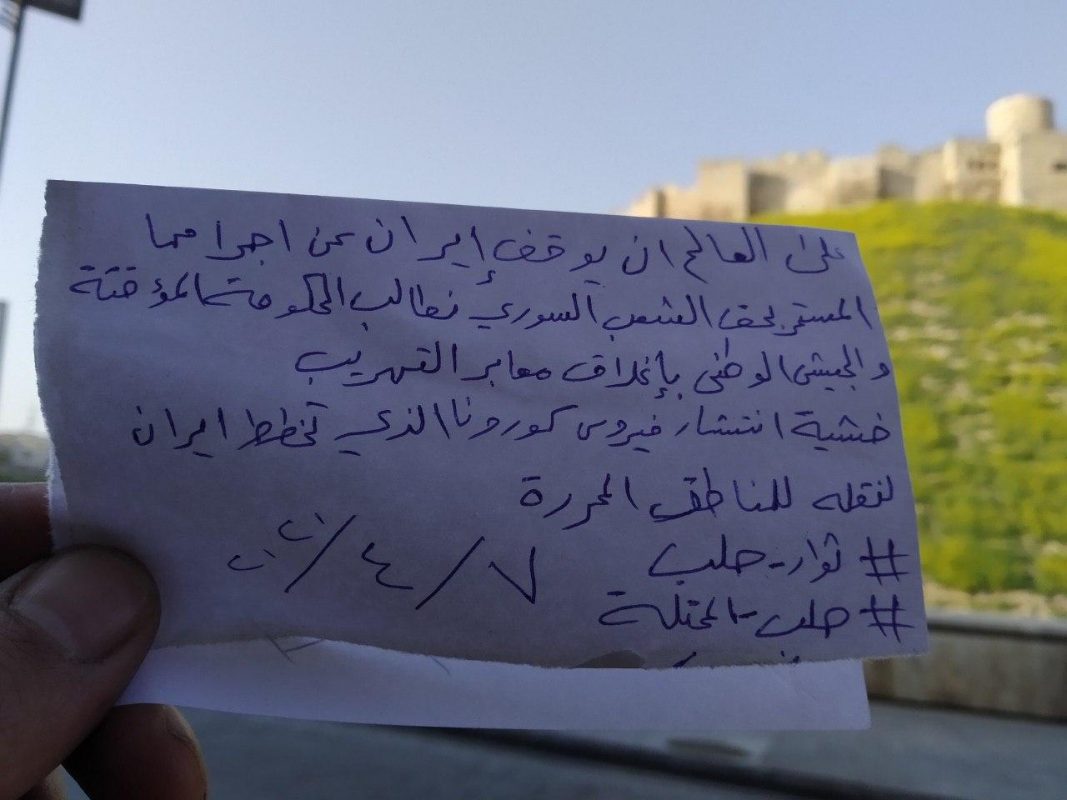 على العالم ان يوقف إيران عن اجرامها
المستمر بحق الشعب السوري نطالب الحكومة المؤقتة
والجيش الوطني بإغلاق معابر التهريب
خشية انتشار فيروس كورونا الذي تخطط ايران
لنقله للمناطق المحررة
# ثوار-حلب
٧/٤/
# حلب-المحتلة